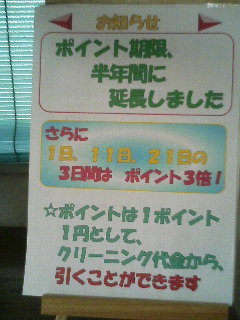 お知らせ
ポイント期限、
半年間に
延長しました
さらに
1日、11日、21日の
3日間は ポイント3倍!
☆ポイントは1ポイント
1円として、
クリーニング代金から、
引くことができます